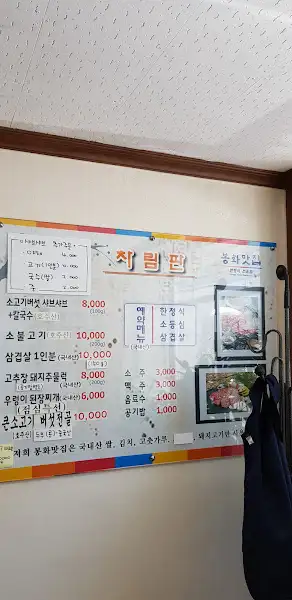 차림판
봉화맛집
소고기버섯 샤브샤브 8,000
+칼국수(호주산) (100g)
소불고기(호주산) 10,000
(200g)
삼겹살 1인분(국내산) 10,000
고추장 돼지주물럭 8,000
(국내산)
우렁이 된장찌개(국내산) 6,000
(점심특선)
큰소고기 버섯전골 10,000
(호주산)
예약메뉴
(국내산)
한정식
소등심
삼겹살
소주 3,000
맥주 3,000
음료수 1,000
공기밥 1,000
저희 봉화맛집은 국내산 쌀, 김치, 고춧가루, 돼지고기만